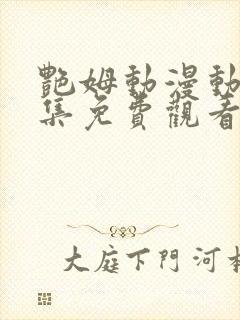 艷姆動漫動
集免費觀看
大庭下門河本